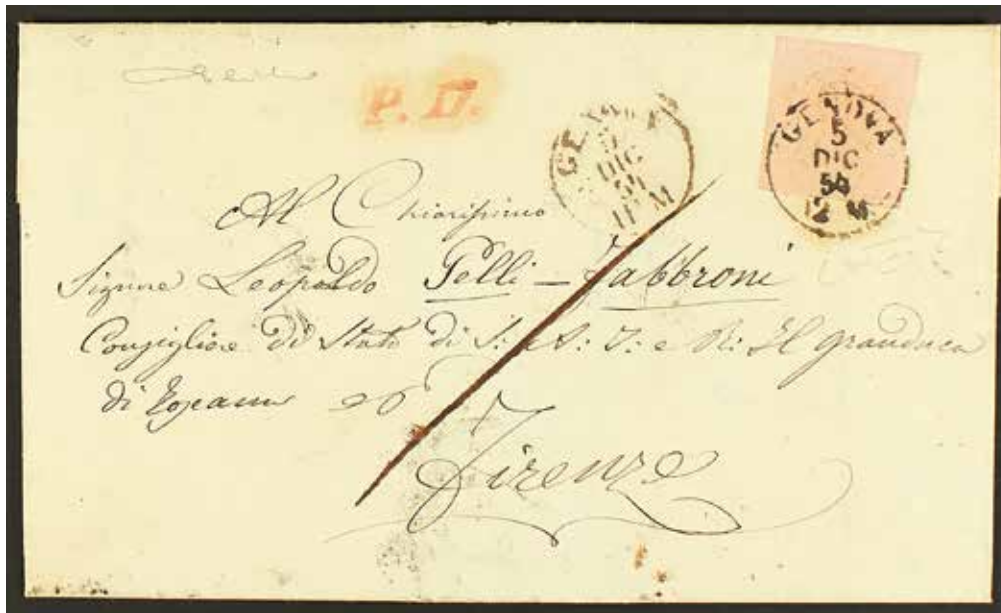 P. D.
GENOVA
5
DIC
54
12 M
GENOVA
5
DIC
54
12 M
Al Chiarissimo
Signore Leopoldo Pelli - Fabbroni
Consigliere di Stato di S: A: I: e R: Il Granduca
di Toscana
Firenze